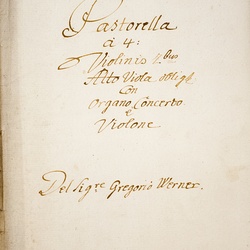 Pastorella
à 4:
Violinis 2.bus
Alto Viola obligt:
Con
Organo Concerto
e
Violone.
Del Sigre Gregorio Werner.